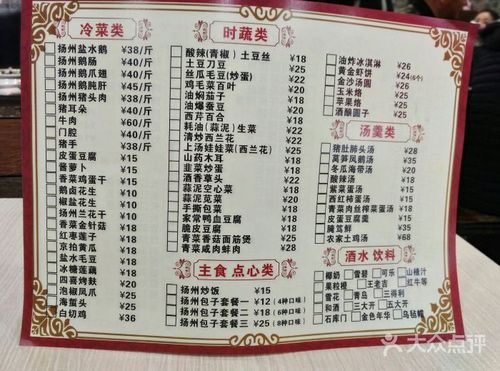 冷菜类
扬州盐水鹅 ¥38/斤
扬州鹅肠 ¥40/斤
扬州鹅爪翅 ¥40/斤
扬州鹅肫肝 ¥45/斤
扬州猪头肉 ¥38/斤
猪耳朵 ¥40/斤
牛肉 ¥60/斤
门腔 ¥40/斤
猪手 ¥38/斤
皮蛋豆腐 ¥15
酱萝卜 ¥15
香菜鸡蛋干 ¥15
鹅卤花生 ¥10
椒盐花生 ¥10
扬州兰花干 ¥15
香菜金针菇 ¥15
红枣莲子 ¥18
京拍黄瓜 ¥18
盐水毛豆 ¥18
冰糖莲藕 ¥18
四喜烤麸 ¥20
泡椒凤爪 ¥25
海蜇头 ¥25
白切鸡 ¥36
时蔬类
酸辣(青椒)土豆丝 ¥18
土豆刀豆 ¥25
丝瓜毛豆(炒蛋) ¥18
鸡毛菜百叶 ¥18
油焖茄子 ¥18
油爆蚕豆 ¥18
西芹百合 ¥18
蚝油(蒜泥)生菜 ¥18
清炒西兰花 ¥18
上汤娃娃菜(西兰花) ¥25
山药木耳 ¥18
韭菜炒蛋 ¥18
酒香草头 ¥22
蒜泥空心菜 ¥18
蒜泥苋菜 ¥18
手撕包菜 ¥18
家常鸭血豆腐 ¥18
脆皮豆腐 ¥18
青菜香菇面筋煲 ¥25
青菜咸肉蚌肉 ¥28
主食 点心类
扬州炒饭 ¥15
扬州包子套餐一 ¥12(4种口味)
扬州包子套餐二 ¥18(6种口味)
扬州包子套餐三 ¥25(8种口味)
油炸冰淇淋 ¥26
黄金虾饼 ¥24(6个)
金沙汤圆 ¥26
玉米烙 ¥26
苹果烙 ¥26
酒酿圆子 ¥26
汤羹类
猪肚肺头汤 ¥28
莴笋凤鹅汤 ¥35
冬瓜海带汤 ¥20
酸辣汤 ¥18
紫菜蛋汤 ¥15
西红柿蛋汤 ¥15
青菜肉丝榨菜蛋汤 ¥18
皮蛋豆腐羹 ¥25
腌笃鲜 ¥35
农家土鸡汤 ¥68
酒水 饮料
椰奶 雪碧 可乐 山楂汁
果粒橙 王老吉 红牛等
雪花 青岛 三得利
和酒 三大开 五大开
石库门 金色年华 乌毡帽
大众点评